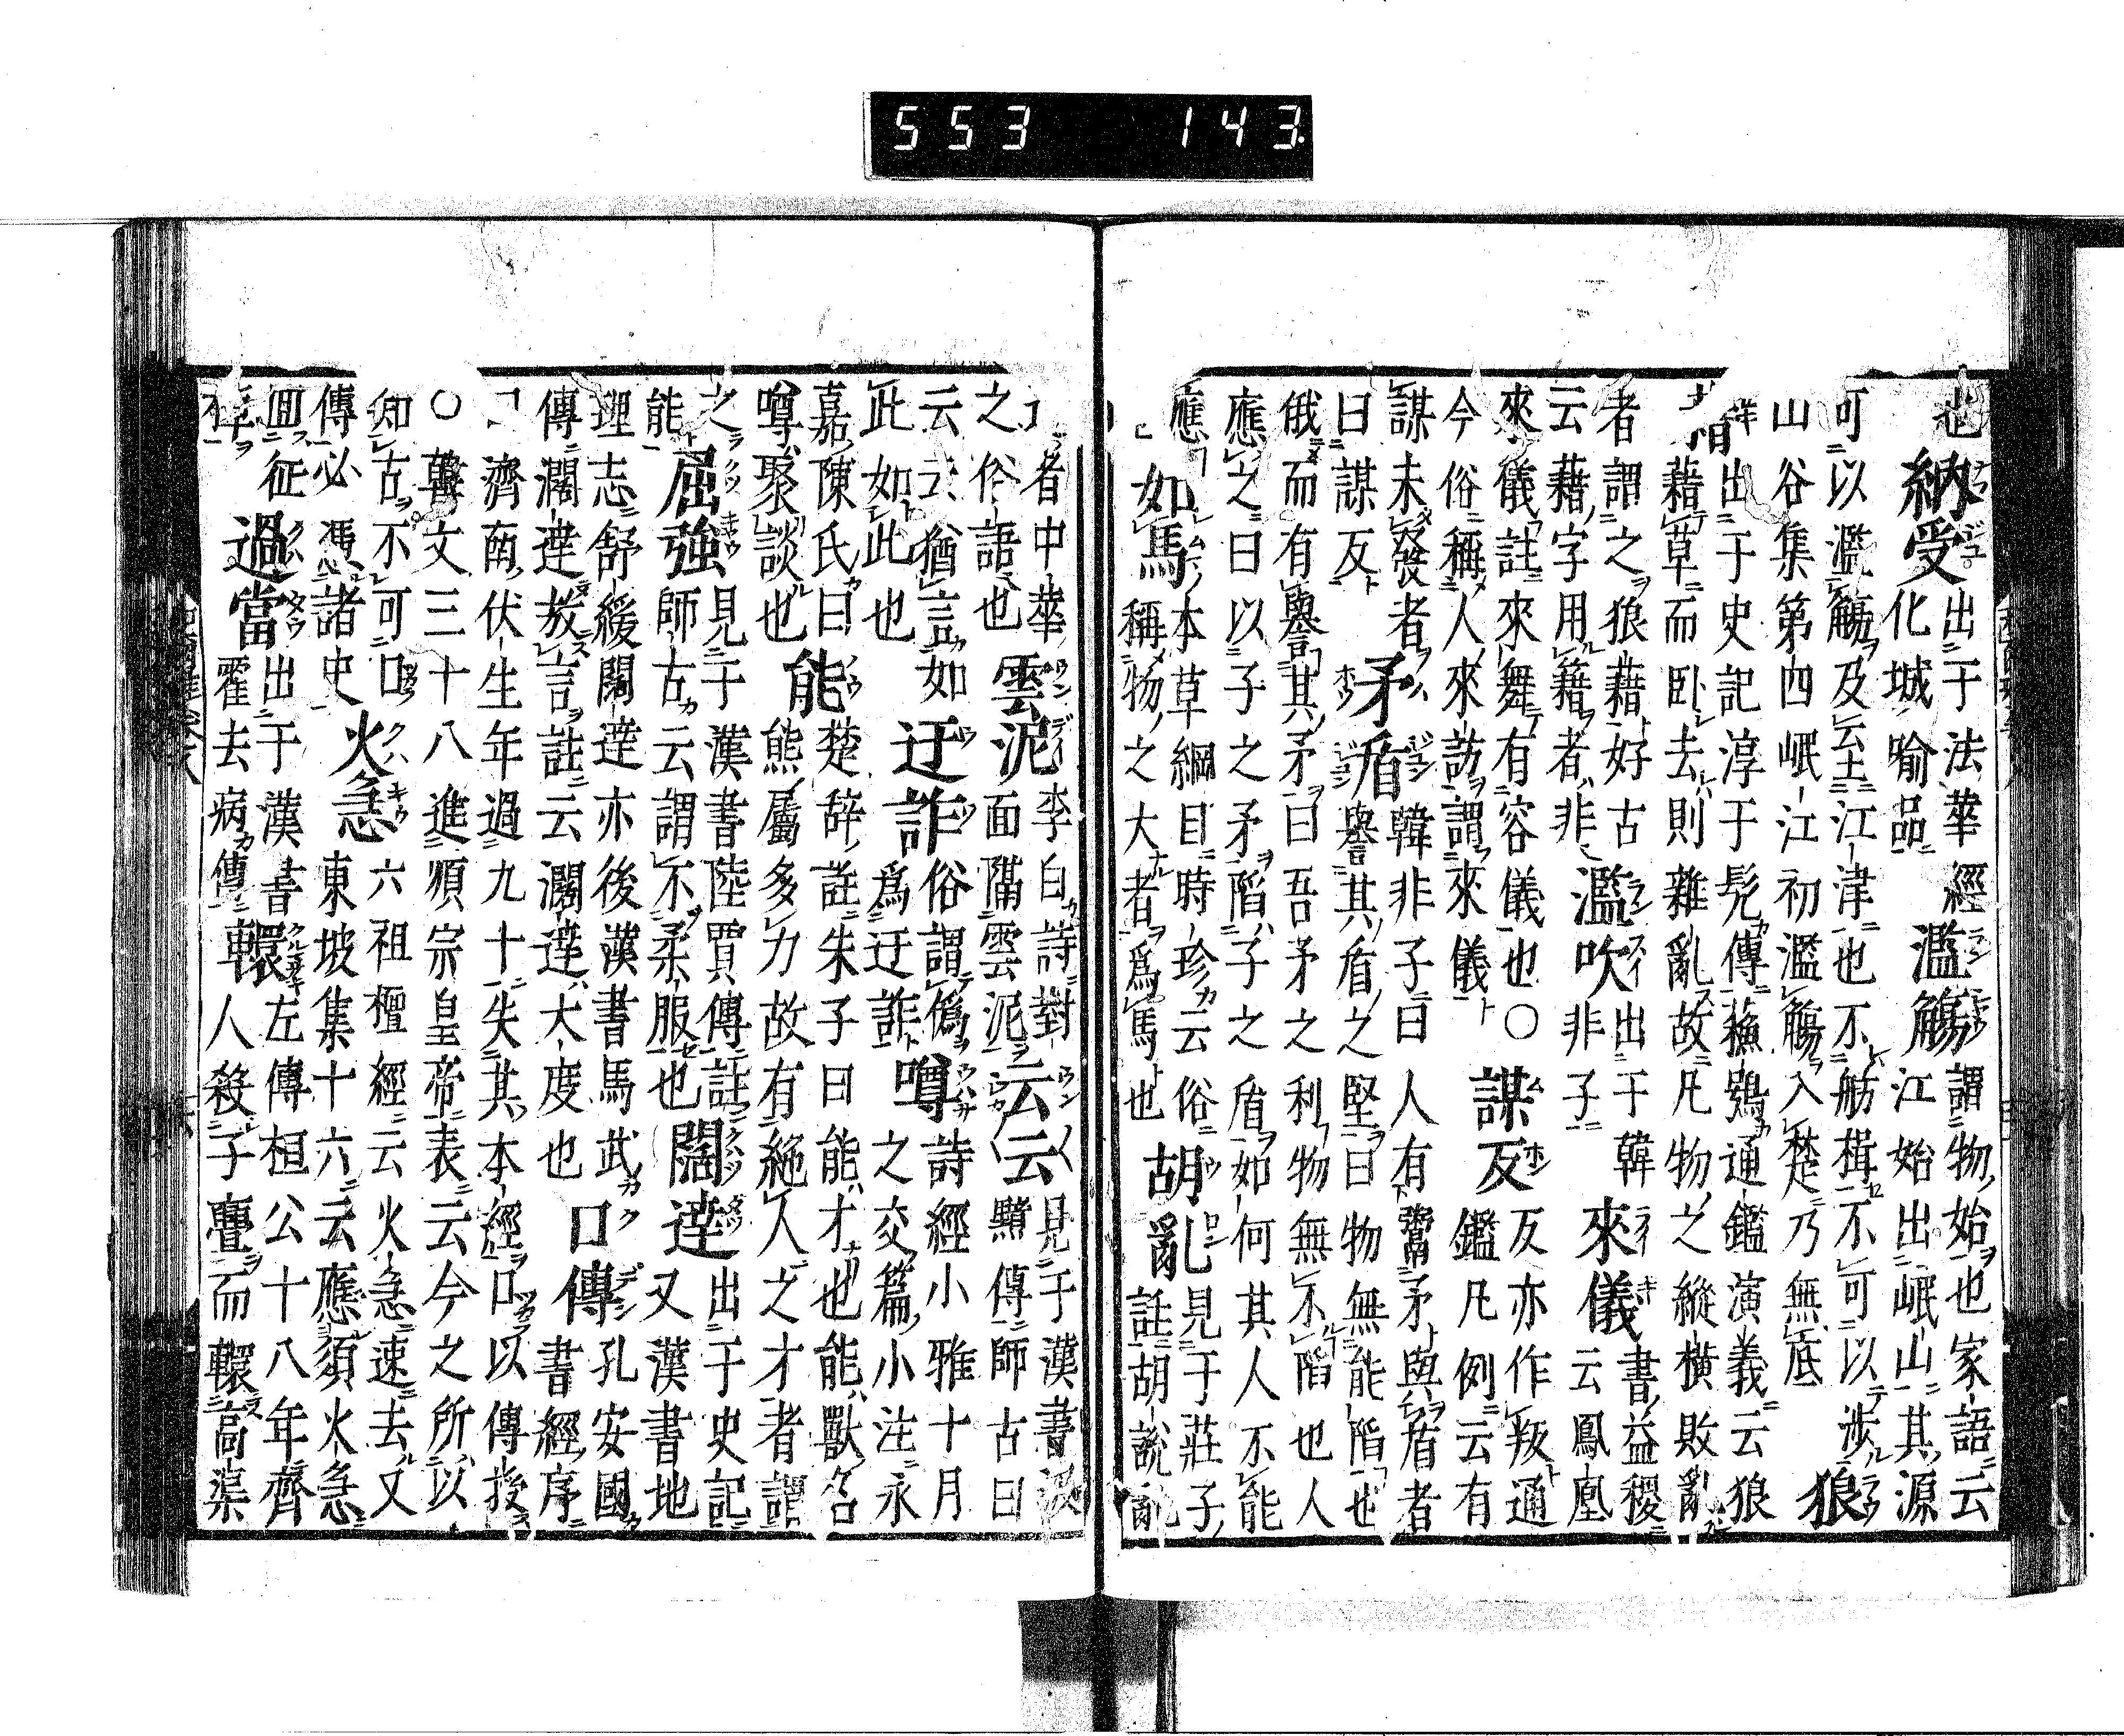 也納受出于法華經化城喻品濫觴謂物始也家語云江始出岷山其源
可以濫觴及至江津也不舫楫不可以涉山谷集第四岷江初濫觴入楚乃無底狼
藉出于史記淳于髡傳蘇鶚通鑑演義云狼藉草而臥去則雜亂故凡物之縱橫敗亂
者謂之狼藉好古云藉字用籍者非濫吹出于韓非子來儀書益稷云鳳凰
來儀註來舞有容儀也○今俗稱人來訪謂來儀謀反反亦作叛通鑑凡例云有
謀未發者曰謀反矛盾韓非子曰人有鬻矛與盾者譽其盾之堅曰物無能陷也
俄而有譽其矛曰吾矛之利物無不陷也人應之曰以子之矛陷子之盾如何其人不能
應也如馬本草綱目時珍云俗稱物之大者爲馬也胡亂見于莊子註胡説亂
者中華之俗語也雲泥李白詩對面隔雲泥云云見于漢書汲黯傳師古曰
云云猶言如此如此也迂詐俗謂偽爲迂詐噂詩經小雅十月之交篇小注永
嘉陳氏曰噂聚談也能楚辞註朱子曰能才也能獸名熊屬多力故有絶人之才者謂
之能屈強見于漢書陸賈傳註師古云謂不柔服也闊達出于史記又漢書地
理志舒緩闊達亦後漢書馬武傳濶達敖言註云濶達大度也口傳孔安國書經序
濟南伏生年過九十失其本經口以傳授○韓文三十八進順宗皇帝表云今之所以
知古不可口傳必憑諸史火急六祖檀經云火急速去又東坡集十六云應須火急
回征過當出于漢書霍去病傳轘左傳桓公十八年齊人殺子亹而轘高渠